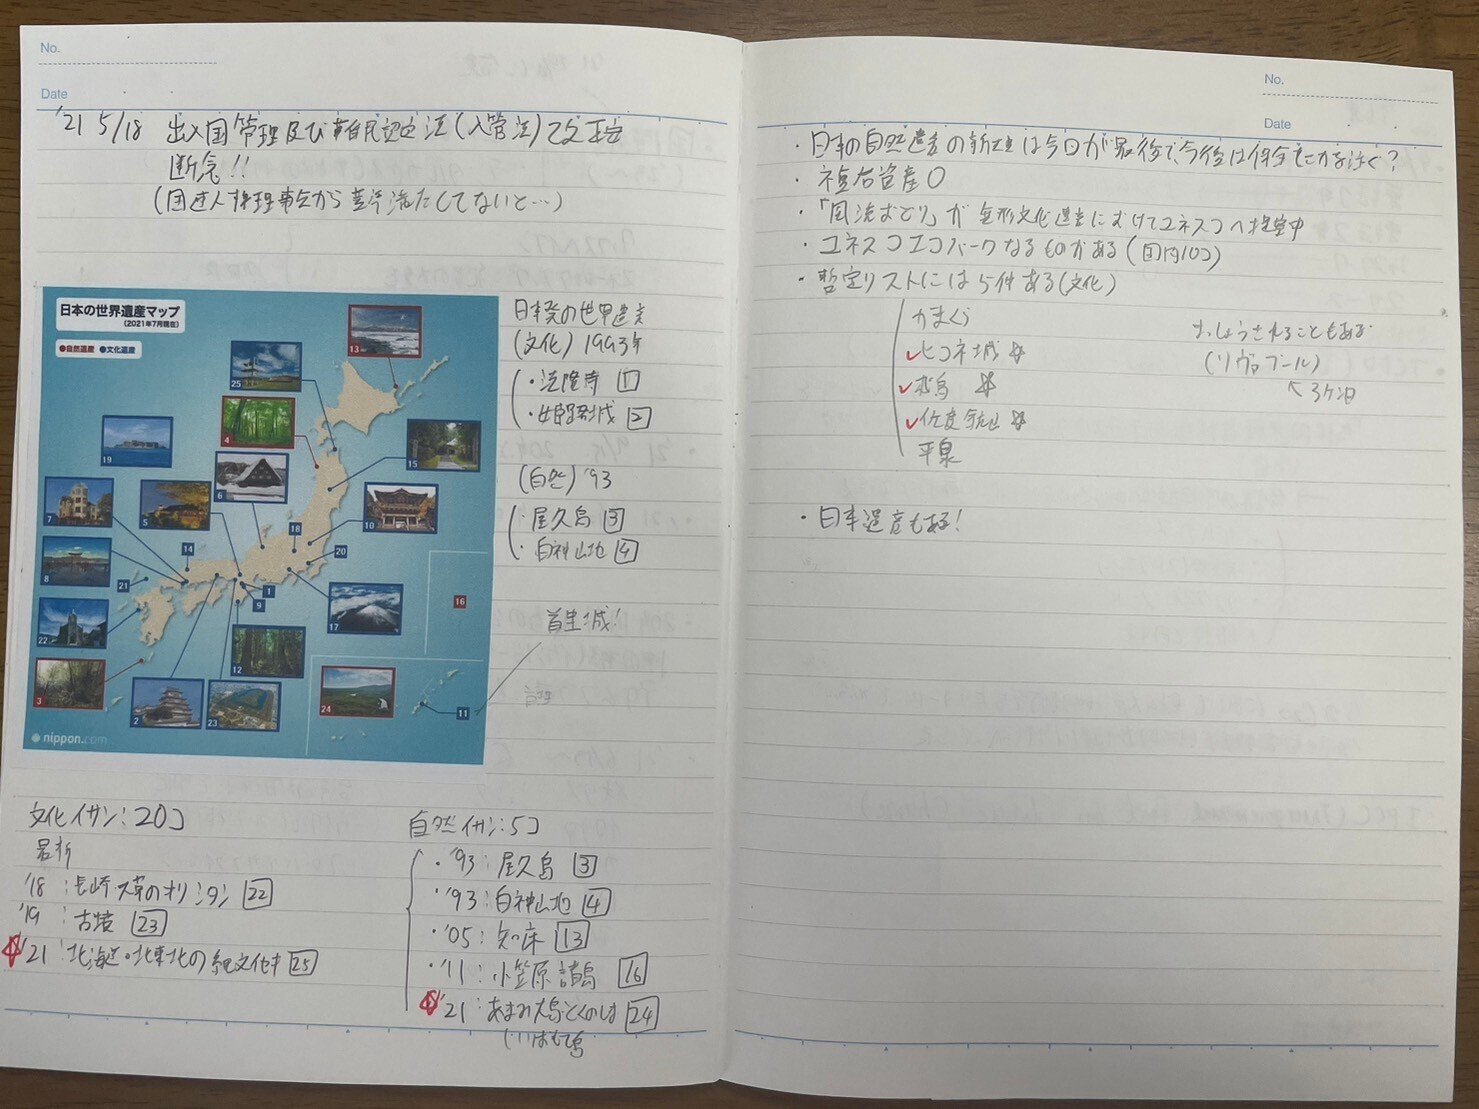 No.
Date
'21 5/18 出入国管理及び難民認定法(入管法)改正
断念!!
(国連人権理事会から基準満たしてないと…)
日本の世界遺産マップ
(2021年7月現在)
●自然遺産 ●文化遺産
13
25
4
19
15
6
7
5
10
18
14
20
8
21
1
9
16
17
22
12
3
2
23
24
11
nippon.com
日本発の世界遺産
(文化) 1993年
・法隆寺 1
・姫路城 2
(自然) '93
・屋久島 3
・白神山地 4
首里城!
文化イサン:20コ
最新
'18:長崎 天草のオリシタン 22
'19:古墳 23
'21:北海道・北東北の縄文化 25
自然イサン:5コ
・'93:屋久島 3
・'93:白神山地 4
・'05:知床 13
・'11:小笠原諸島 16
'21:あまみ大島とくのしま 24
No.
Date
・日本の自然遺産の新規は今回が最後で今後は保全に力を注ぐ?
・複合資産0
・「風流おどり」が無形文化遺産にむけてユネスコへ提案中
・ユネスコエコパークなるものがある(国内10コ)
・暫定リストには5件ある(文化)
かまくら
✓ヒコネ城 ☆
✓飛鳥 ☆
✓佐度金山 ☆
平泉
まっしょうされることもある
(リヴァプール)
↖3ケ目
・日本遺産もある!